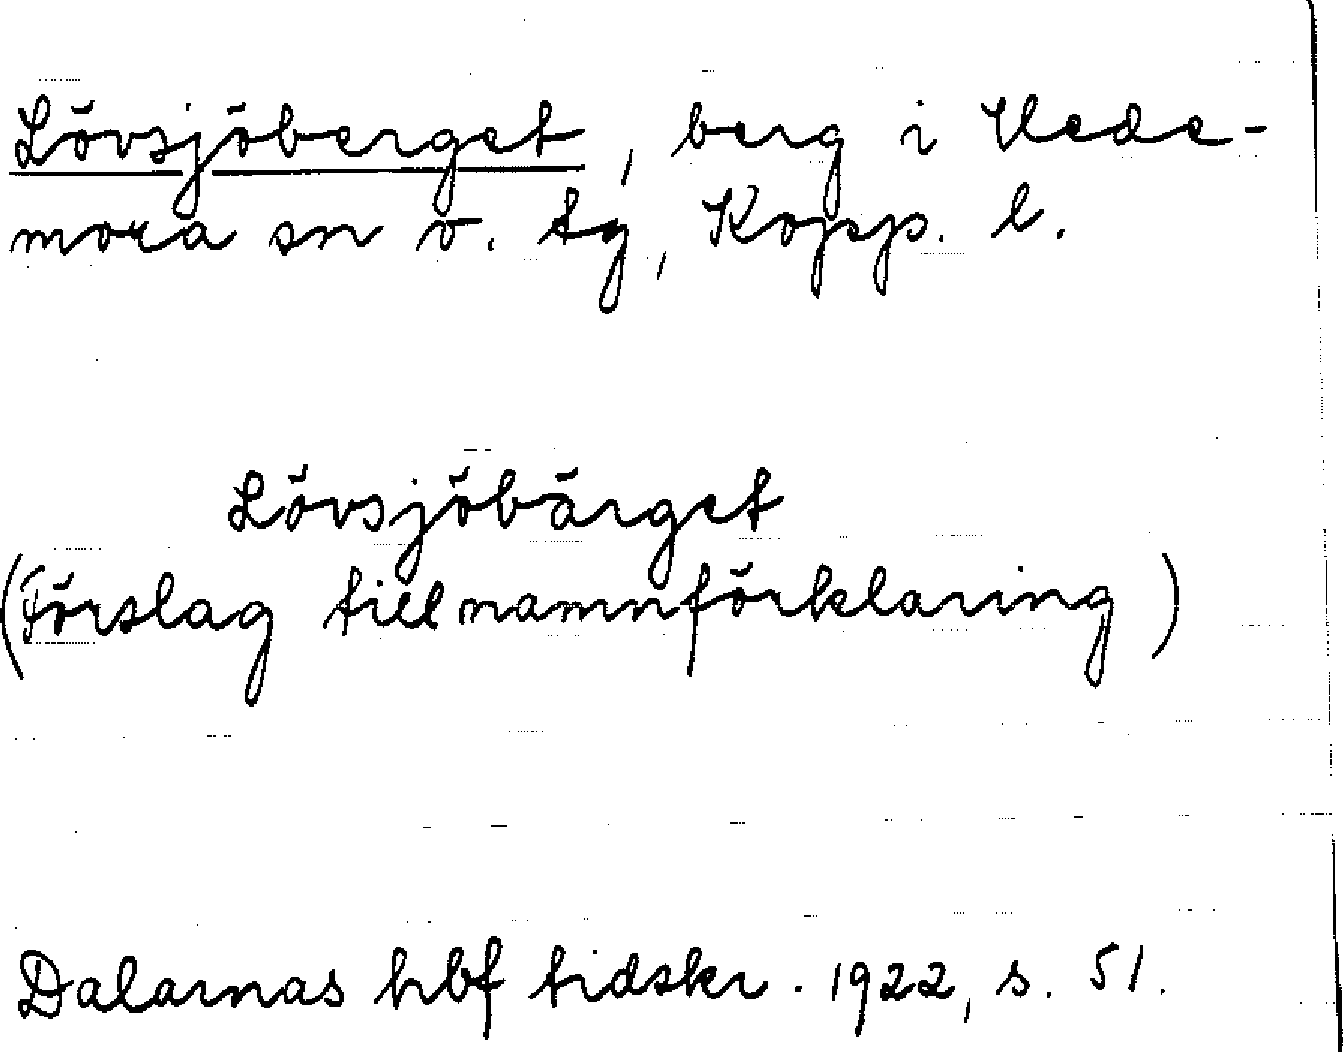 Lövsjöberget, berg i Hede-
mora sn o. tg, Kopp. l.
Lövsjöbärget
(Förslag till namnförklaring)
Dalarnas hbf tidskr. 1922, s. 51.